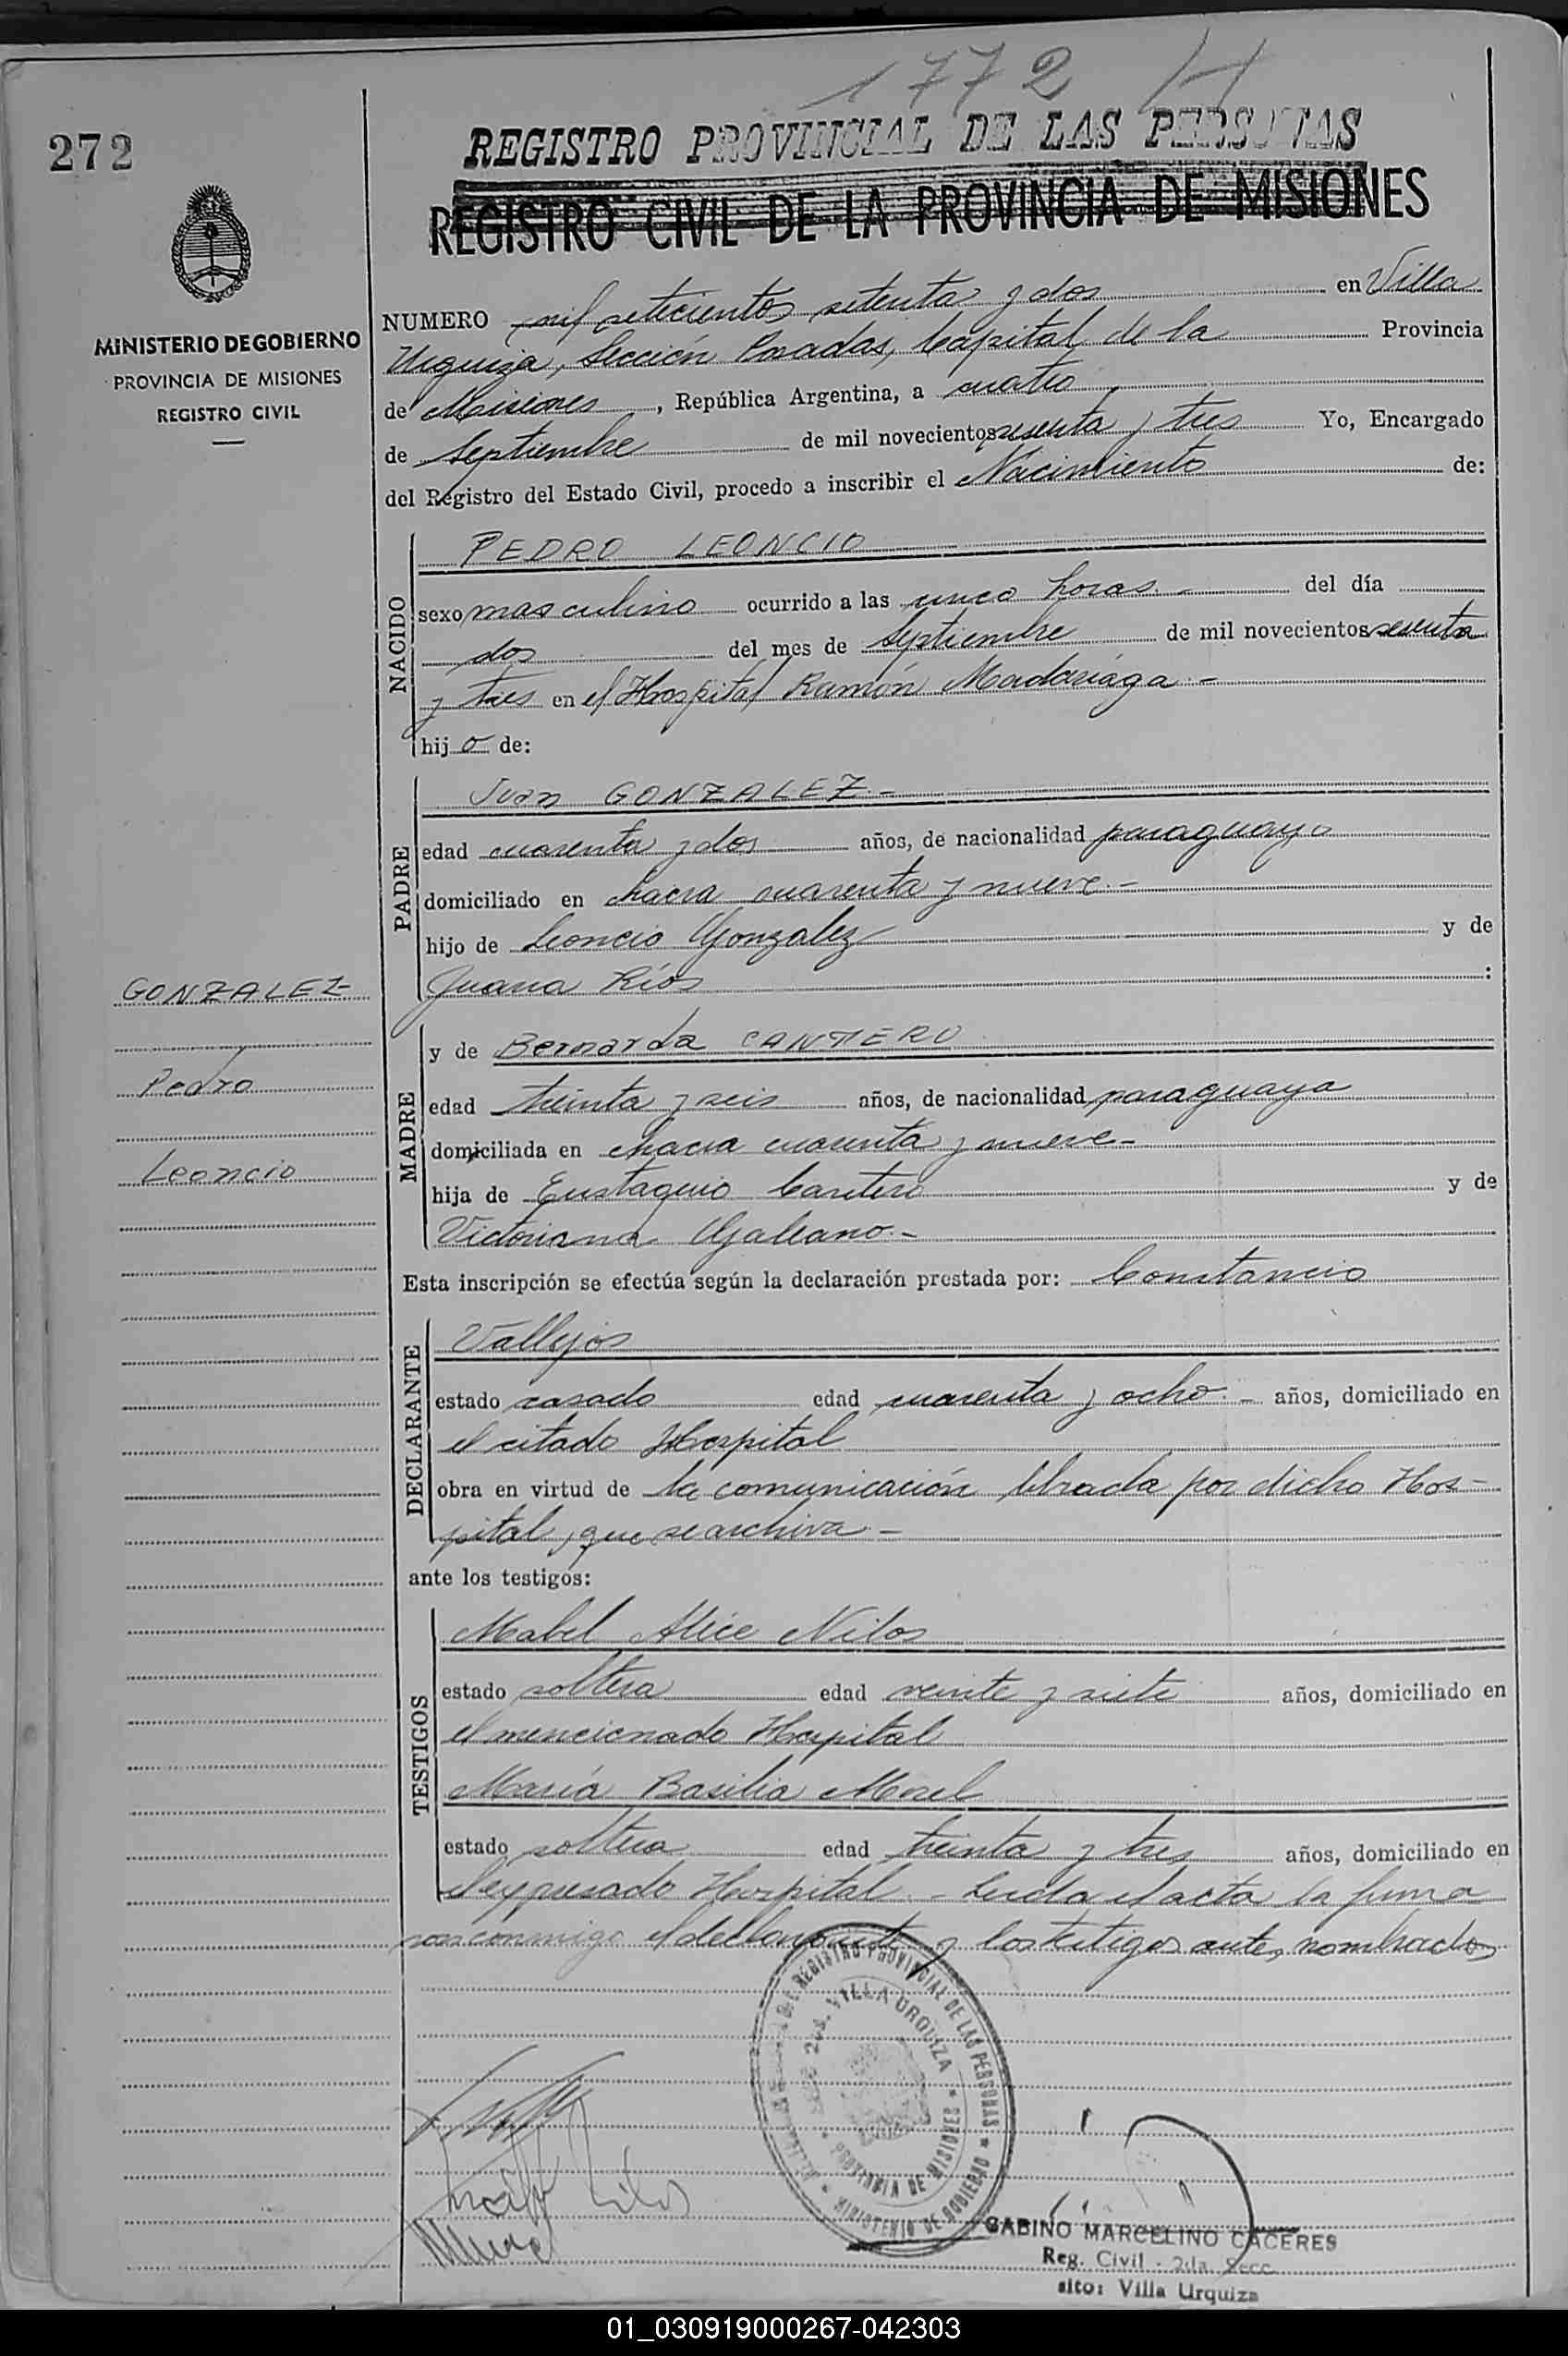 1772
272
REGISTRO PROVINCIAL DE LAS PERSONAS
REGISTRO CIVIL DE LA PROVINCIA DE MISIONES
MINISTERIO DE GOBIERNO
PROVINCIA DE MISIONES
REGISTRO CIVIL
NUMERO mil setecientos setenta y dos en Villa
Urquiza, Sección Posadas, Capital de la Provincia
de Misiones, República Argentina, a cuatro
de Septiembre de mil novecientos sesenta y tres Yo, Encargado
del Registro del Estado Civil, procedo a inscribir el Nacimiento de:
NACIDO
PEDRO LEONCIO
sexo masculino ocurrido a las cinco horas.- del día
dos del mes de Septiembre de mil novecientos sesenta
y tres en el Hospital Ramón Madariaga.-
hijo de:
PADRE
Juan GONZALEZ.-
edad cuarenta y dos años, de nacionalidad paraguayo
domiciliado en chacra cuarenta y nueve.-
hijo de Leoncio Gonzalez y de
Juana Ríos :
GONZALEZ
Pedro
Leoncio
MADRE
y de Bernarda CANTERO
edad treinta y seis años, de nacionalidad paraguaya
domiciliada en chacra cuarenta y nueve-
hija de Eustaquio Cantero y de
Victoriana Galeano.-
Esta inscripción se efectúa según la declaración prestada por: Constancio
DECLARANTE
Vallejos
estado casado edad cuarenta y ocho.- años, domiciliado en
el citado Hospital
obra en virtud de la comunicación librada por dicho Hos-
pital, que se archiva.-
ante los testigos:
TESTIGOS
Mabel Alice Nilos
estado soltera edad veinte y siete años, domiciliado en
el mencionado Hospital
María Basilia Morel
estado soltera edad treinta y tres años, domiciliado en
el expresado Hospital.- Leida el acta la firma
con conmigo el declarante y los testigos antes nombrados
REGISTRO PROVINCIAL DE LAS PERSONAS * MINISTERIO DE GOBIERNO *
VILLA URQUIZA * PROVINCIA DE MISIONES *
GABINO MARCELINO CACERES
Reg. Civil - 2da. Secc.
sito: Villa Urquiza
01_030919000267-042303